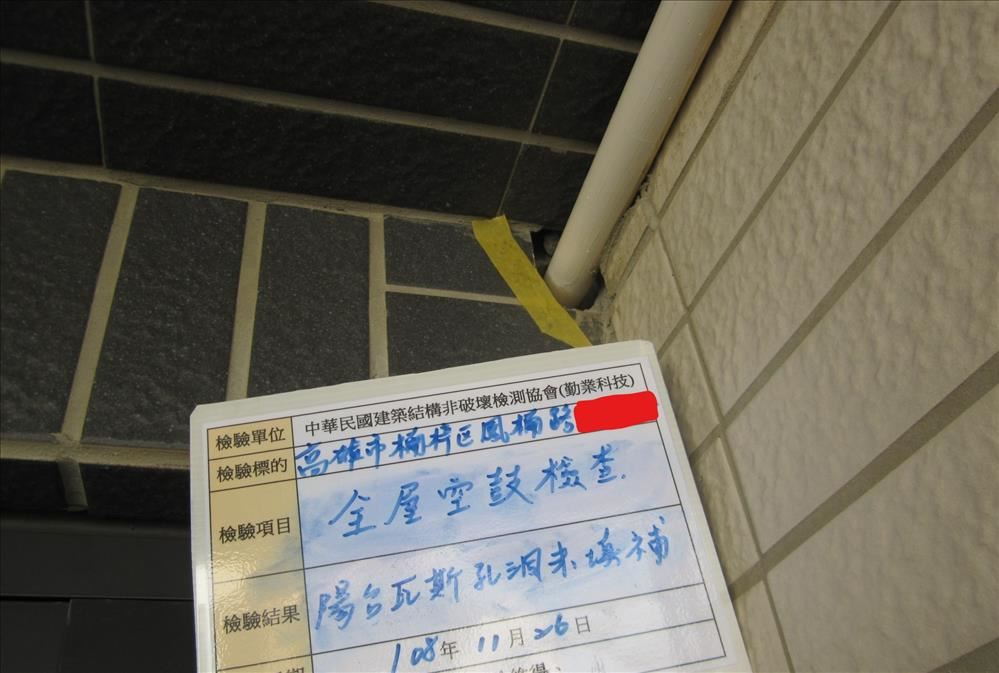 檢驗單位 中華民國建築結構非破壞檢測協會(勤業科技)
檢驗標的 高雄市楠梓區鳳楠路
檢驗項目 全屋空鼓檢查.
檢驗結果 陽台瓦斯孔洞未填補
108年 11月 26日